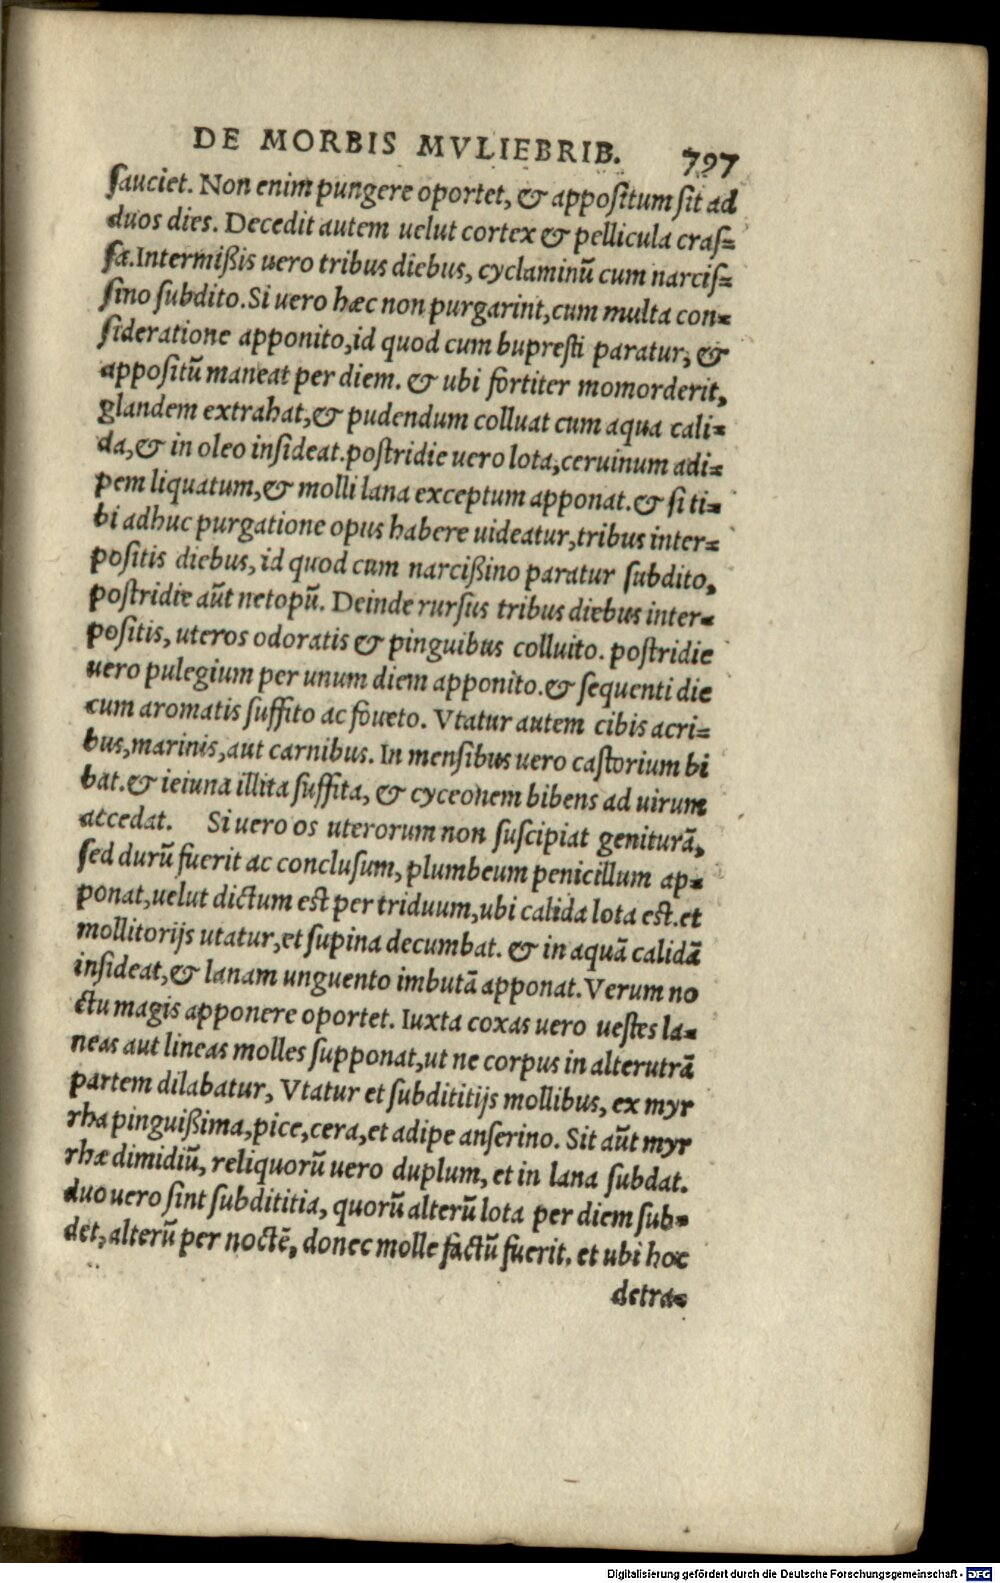 DE MORBIS MVLIEBRIB. 797
sauciet. Non enim pungere oportet, & appositum sit ad
duos dies. Decedit autem uelut cortex & pellicula cras=
sæ. Intermißis uero tribus diebus, cyclaminū cum narcis=
sino subdito. Si uero hæc non purgarint, cum multa con=
sideratione apponito, id quod cum bupresti paratur, &
appositū maneat per diem. & ubi fortiter momorderit,
glandem extrahat, & pudendum colluat cum aqua cali=
da, & in oleo insideat. postridie uero lota, ceruinum adi=
pem liquatum, & molli lana exceptum apponat. & si ti=
bi adhuc purgatione opus habere uideatur, tribus inter=
positis diebus, id quod cum narcißino paratur subdito,
postridie aūt netopū. Deinde rursus tribus diebus inter=
positis, uteros odoratis & pinguibus colluito. postridie
uero pulegium per unum diem apponito. & sequenti die
cum aromatis suffito ac foueto. Vtatur autem cibis acri=
bus, marinis, aut carnibus. In mensibus uero castorium bi
bat. & ieiuna illita suffita, & cyceonem bibens ad uirum
accedat. Si uero os uterorum non suscipiat geniturā,
sed durū fuerit ac conclusum, plumbeum penicillum ap=
ponat, uelut dictum est per triduum, ubi calida lota est. et
mollitorijs utatur, et supina decumbat. & in aquā calidā
insideat, & lanam unguento imbutā apponat. Verum no
ctu magis apponere oportet. Iuxta coxas uero uestes la=
neas aut lineas molles supponat, ut ne corpus in alterutrā
partem dilabatur, Vtatur et subdititijs mollibus, ex myr
rha pinguißima, pice, cera, et adipe anserino. Sit aūt myr
rhæ dimidiū, reliquorū uero duplum, et in lana subdat.
duo uero sint subdititia, quorū alterū lota per diem sub=
det, alterū per noctē, donec molle factū fuerit. et ubi hoc
detra=
Digitalisierung gefördert durch die Deutsche Forschungsgemeinschaft - DFG